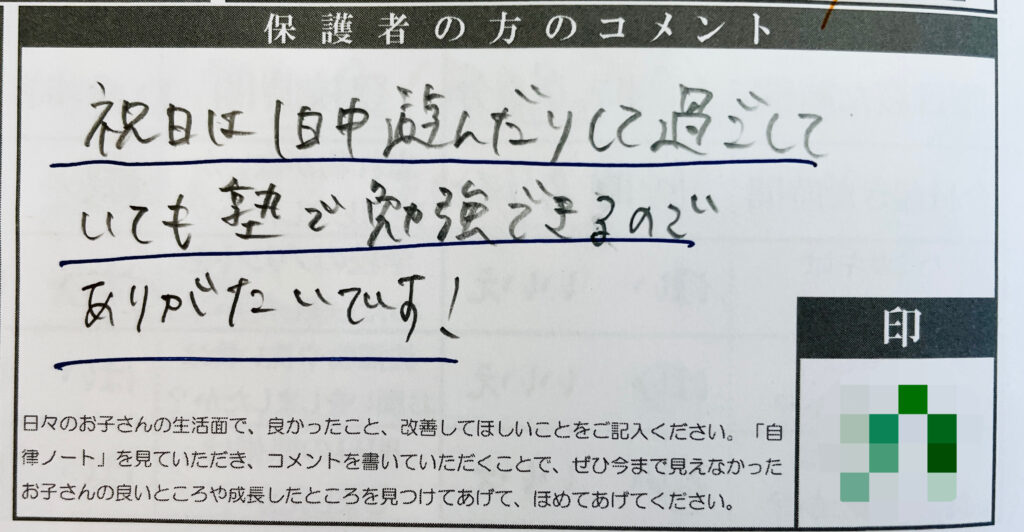 保護者の方のコメント
祝日は1日中遊んだりして過ごして
いても塾で勉強できるので
ありがたいです!
印
日々のお子さんの生活面で、良かったこと、改善してほしいことをご記入ください。「自
律ノート」を見ていただき、コメントを書いていただくことで、ぜひ今まで見えなかった
お子さんの良いところや成長したところを見つけてあげて、ほめてあげてください。